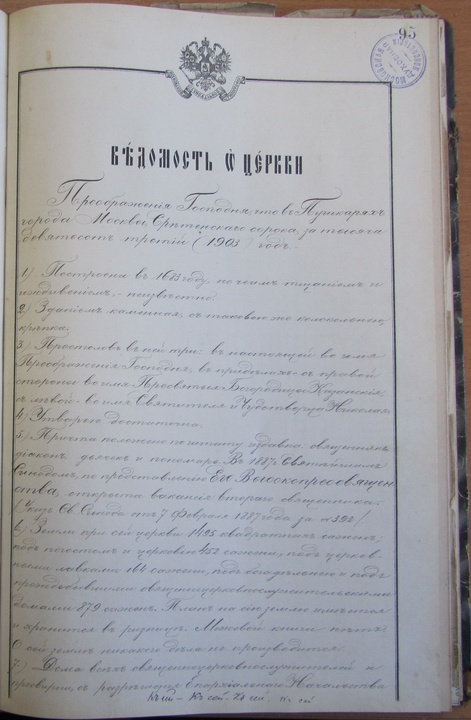 95
ВѢДОМОСТЬ Ѡ ЦЕРКВИ
Преображенія Господня, что въ Пушкаряхъ
города Москвы, Срѣтенскаго сорока, за тысяча
девятьсотъ третій (1903) годъ.
1) Построена въ 1683 году, по чьимъ тщаніемъ и
иждивеніемъ, - неизвѣстно.
2) Зданіемъ каменная, съ таковою же колокольнею,
крѣпка.
3) Престоловъ въ ней три: въ настоящей во имя
Преображенія Господня, въ придѣлахъ съ правой
стороны во имя Пресвятыя Богородицы Казанскія,
съ лѣвой - во имя Святителя и Чудотворца Николая.
4) Утварію достаточна.
5) Причта положено по штату издавна священникъ
діаконъ, дьячекъ и пономарь. Въ 1887г. Святѣйшимъ
Синодомъ, по представленію Его Высокопреосвящен
ства, открыта ваканія втораго священника.
/Указъ Св. Синода отъ 7 Февраля 1887 года за № 392/
6) Земли при сей церкви 1495 квадратныхъ сажень:
подъ погостомъ и церковію 452 сажени, подъ церков-
ными лавками 164 сажени, подъ богадѣльнею и подъ
священноцерковнослужительскими
домами 879 сажень. Планъ на сію землю имѣется
и хранится въ ризницѣ. Межевой книги нѣтъ.
О сей землѣ никакого дѣла не производится.
7) Дома всѣхъ священноцерковнослужителей и
просвирни, съ разрѣшенія Епархіальнаго Начальства
къ сей